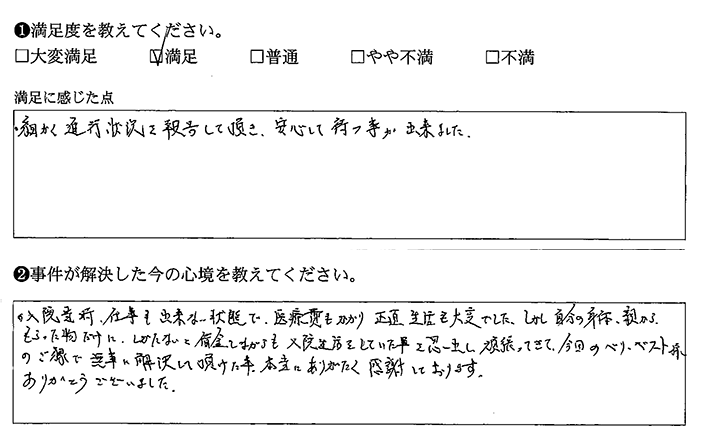 ❶満足度を教えてください。
□大変満足 ☑満足 □普通 □やや不満 □不満
満足に感じた点
・細かく進行状況を報告して頂き、安心して待つ事が出来ました。
❷事件が解決した今の心境を教えてください。
入院当時、仕事も出来ない状態で、医療費もかかり正直生活も大変でした。しかし自分の身体、親から
もらった物だけに、しかたないと借金しながらも入院生活をしていた事を思い出し頑張ってきて、今回のベリーベスト様
のご縁で無事に解決して頂けた事、本当にありがたく感謝しております。
ありがとうございました。